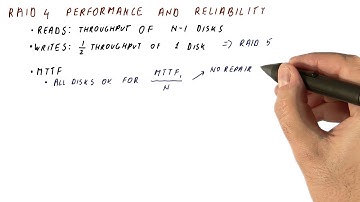 RAID 4 PERFORMANCE AND RELIABILITY
• READS: THROUGHPUT OF N-1 DISKS
• WRITES: 1/2 THROUGHPUT OF 1 DISK ⇒ RAID 5
• MTTF
• ALL DISKS OK FOR MTTF₁/N → NO REPAIR